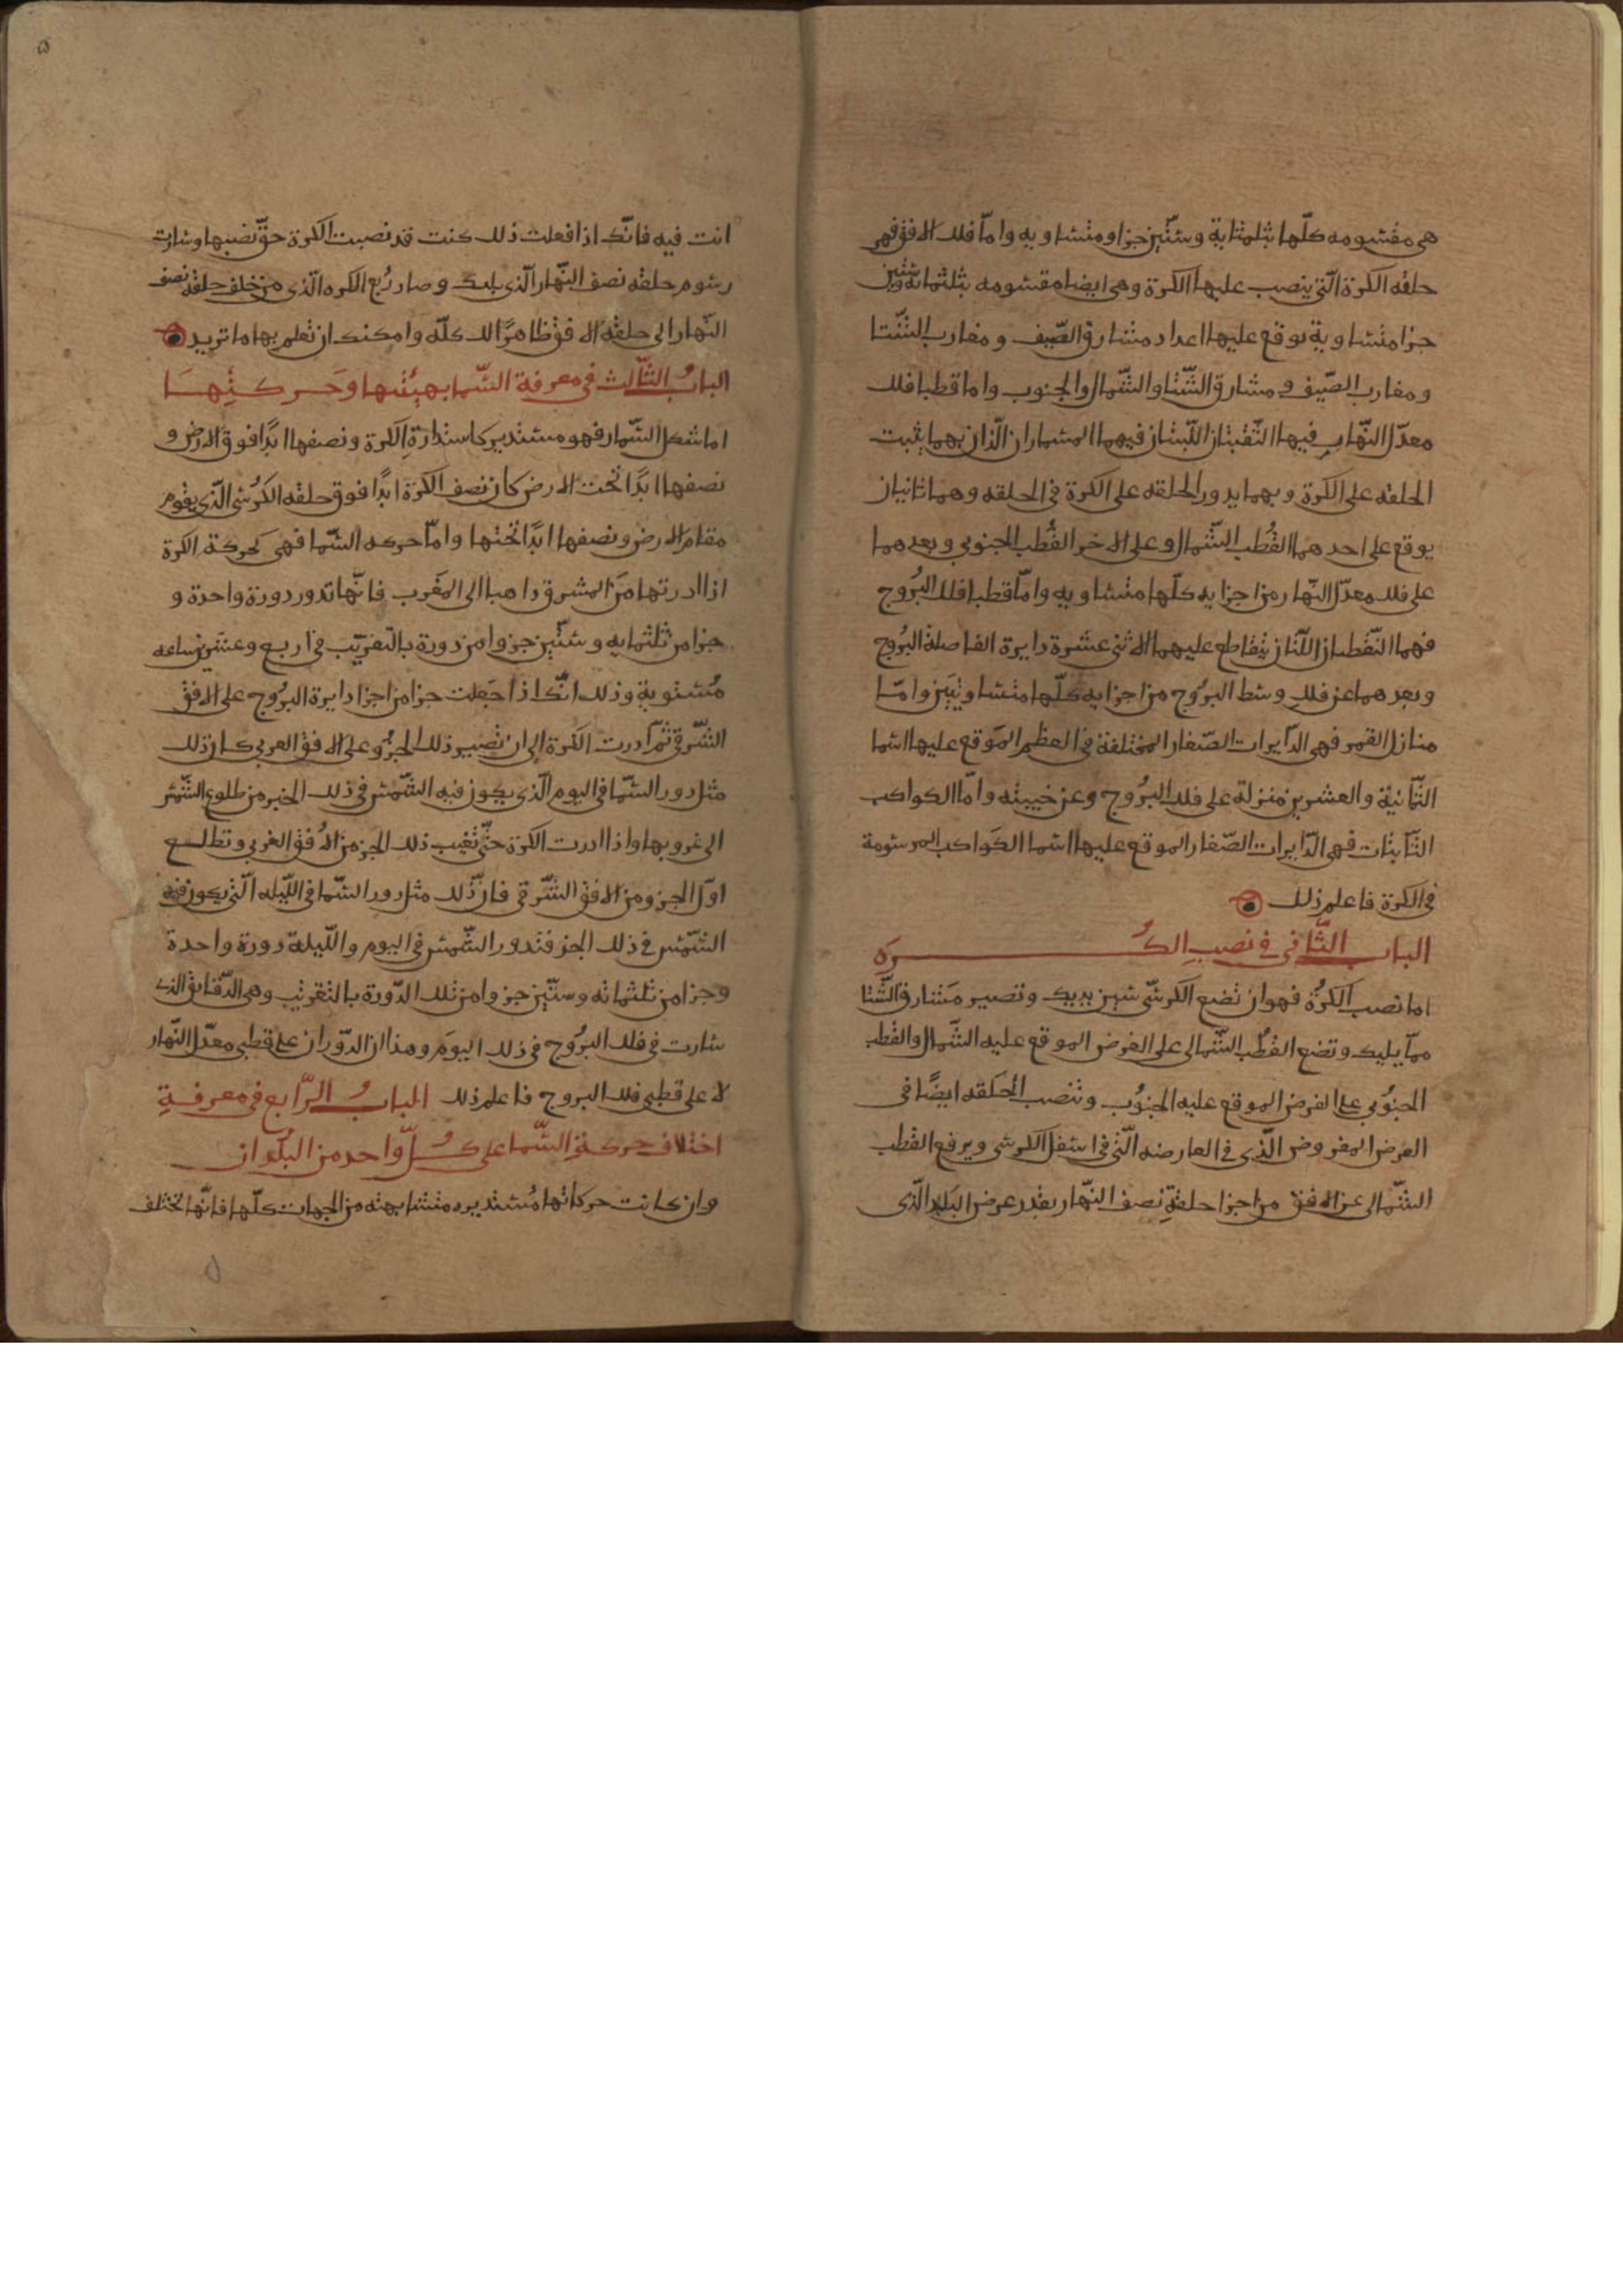 هى مقسومه كلّها بثلثماية وستّين جزا ومتساويه وامّا فلك الافق فهى
حلقه الكرة الّتى ينصب عليها الكرة وهى ايضا مقسومه بثلثمائة وستّين
جزا متساوية يوقع عليها اعداد مشارق الصّيف ومغارب الشّتا
ومغارب الصّيف ومشارق الشّتا والشّمال والجنوب واما قطبا فلك
معدّل النّهار فيها الثّقبتان اللّتان فيهما المسماران الّذان بهما يثبت
الحلقه على الكرة وبهما يدور الحلقه على الكرة فى الحلقه وهما ثانيان
يوقع على احدهما القُطب الشّمال وعلى الاخر القُطب الجنوبى وبعدهما
على فلك معدّل النّهار من اجزايه كلّها متساويه وامّا قطبا فلك البُروج
فهما النّقطتان اللّتان يتقاطع عليهما الاثنى عشرة دايرة الفاصلة البُروج
وبعدهما عن فلك وسط البروج من اجزايه كلّها متساويَين وامّا
منازل القمر فهى الدّايرات الصّغار المختلفة فى العظم الموقع عليها اسما
الثّمانية والعشرين منزلة على فلك البُروج وعن جنبيته وامّا الكواكب
الثّابتات فهى الدّايرات الصّغار الموقع عليها اسما الكواكب المرسومة
فى الكرة فاعلم ذلك
الباب الثّانى فى نصب الكُرَه
اما نصب الكرُة فهو ان تضع الكرسّى بين يديك وتصير مَشارق الشّتا
ممّا يليك وتضع القُطب الشّمالى على الفرض الموقع عليه الشّمال والقطب
الجنُوبى على الفرض الموقع عليه الجنُوب وتنصب الحَلقه ايضًا فى
الفرض المفروض الّذى فى العارضه الّتى فى اسفل الكرسى ويرفع القطب
الشّمالى عن الافق من اجزا حلقةِ نصف النّهار بقدر عرض البَلد الّذى
انت فيه فانّك اذا فعلت ذلك كنت قد نصبت الكرة حقّ نصبها وسارت
رسوم حلقه نصف النّهار الّذى يليك وصار رُبع الكره الّذى من خلف حلقه نصف
النّهار الى حلقة الافق ظاهرًا لك كلّه وامكنك ان تعلم بها ما تريد
البابُ الثّالث فى معرفة السّما بهيئتها وحَركتِهَا
اما شكل السّما فهو مستدير كاستدارةِ الكرة ونصفها ابدًا فوق الارض و
نصفها ابدًا تحت الارض كان نصف الكرة ابدًا فوق حلقه الكرُسّى الّذى يقوم
مقام الارض ونصفها ابدًا تحتها وامّا حركه السّما فهى كحركة الكرة
اذا ادرتها مَن المشرق ذاهبا الى المغرب فانّها تدور دورة واحدة و
جزا من ثلثمايه وستّين جزوا من دورة بالتقريب فى اربع وعشرين ساعه
مُستوية وذلك انّك اذا جَعلت جزا من اجزا دايرة البرُوج على الافق
الشّرقى ثمّ ادرت الكرة الى ان تصير ذلك الجزُو على الافق الغربى كان ذلك
مثل دور السّما فى اليوم الّذى يكون فيه الشّمس فى ذلك الجز من طلوع الشّمس
الى غروبها واذا ادرت الكرة حتّى تغيب ذلك الجز من الافق الغربى وتطلع
اوّل الجزو من الافق الشّرقى فان ذلك مثل دور السّما فى اللّيله الّتى يكون فيه
الشّمس فى ذلك الجز فتدور الشّمس فى اليوم واللّيلة دورة واحدة
وجزا من ثلثمائه وستّين جزوا من تلك الدّورة بالتقريب وهى الدّقايق الذى
سارت فى فلك البرُوج فى ذلك اليوَم وهذا ان الدّوران على قطبى معدّل النّهار
لا على قطبى فلك البروج فاعلم ذلك البابُ الرّابع فى معرفةِ
اختلاف حركة السّما على كُلّ واحد من البُلدان
وان كانت حركاتها مُستديره متشابهته من الجهات كلّها فانّها تختلف